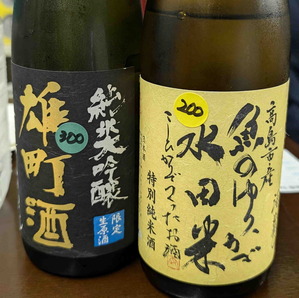 雄町酒
300
純米大吟醸
限定
生原酒
200
高島市産
魚のゆりかご
水田米
こしひかりでつくったお酒
特別純米酒
日本酒